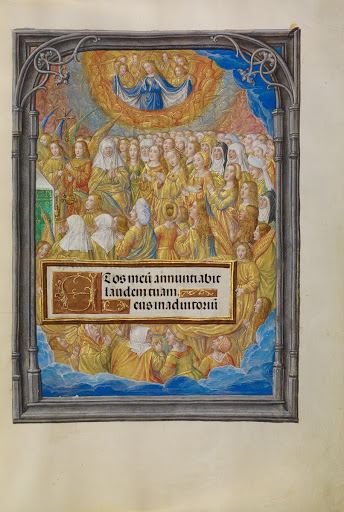 Et os meū annuntiabit
laudem tuam
Deus in adiutoriū